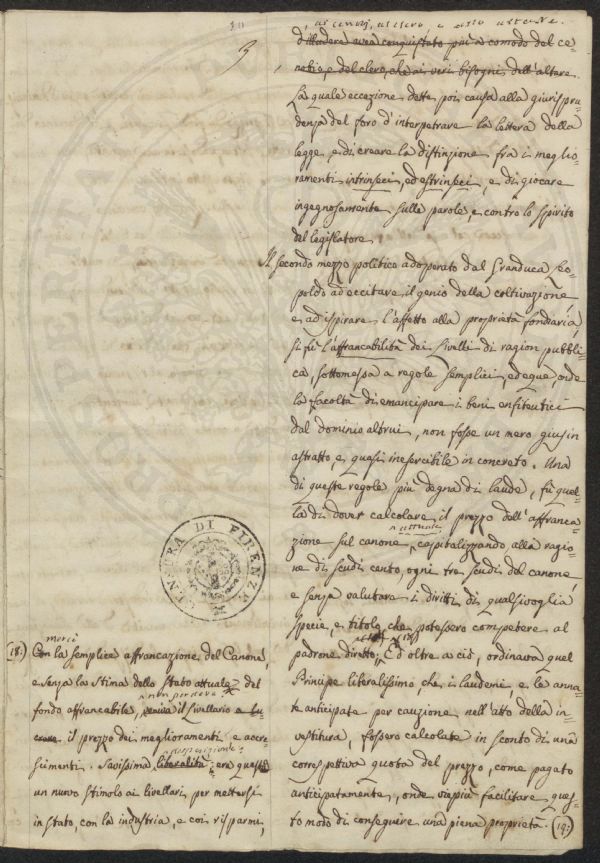 3
d'illudere avea conquistato più a comodo del ce=
nobio, e del clero, che ai veri bisogni dell'altare.
La quale eccezione dette poi causa alla giurispru=
denza del foro d'interpetrare la lettera della
legge, e di creare la distinzione fra i meglio=
ramenti intrinseci, ed estrinseci, e di giocare
ingegnosamente sulle parole, e contro lo spirito
del legislatore.
Il secondo mezzo politico adoperato dal Granduca Leo=
poldo ad eccitare il genio della coltivazione,
e ad ispirare l'affetto alla proprietà fondiaria,
si fù l'affrancabilità dei Livelli di ragion pubbli=
ca, sottomessa a regole semplici, ed eque, onde
la facoltà di emancipare i beni enfiteutici
dal dominio altrui, non fosse un mero gius in
astratto, e quasi inesercibile in concreto. Una
di queste regole più degna di laude, fù quel=
la di dover calcolare il prezzo dell'affranca=
attuale
zione sul canone, capitalizzando alla ragio=
ne di scudi cento, ogni tre scudi del canone,
e senza valutare i diritti di qualsivoglia
specie, e titolo, che potessero competere al
padrone diretto. (18) Ed oltre a ciò, ordinava quel
Principe liberalissimo, che i laudemi, e le anna=
te anticipate per cauzione nell'atto della in=
vestitura, fossero calcolate in sconto di una
correspettiva quota del prezzo, come pagato
anticipatamente, onde viepiù facilitare ques=
to modo di conseguire una piena proprietà. (19:)
CENSURA DI FIRENZE
mercè
(18:) Con la semplice affrancazione del Canone,
e senza la stima dello stato attuale del
non perdeva
fondo affrancabile, veniva il Livellario a
il prezzo dei miglioramenti, e accre=
disposizione:
scimenti. Savissima liberalità: era questo
un nuovo stimolo ai livellari per mettersi
in stato, con la industria, e coi risparmi,